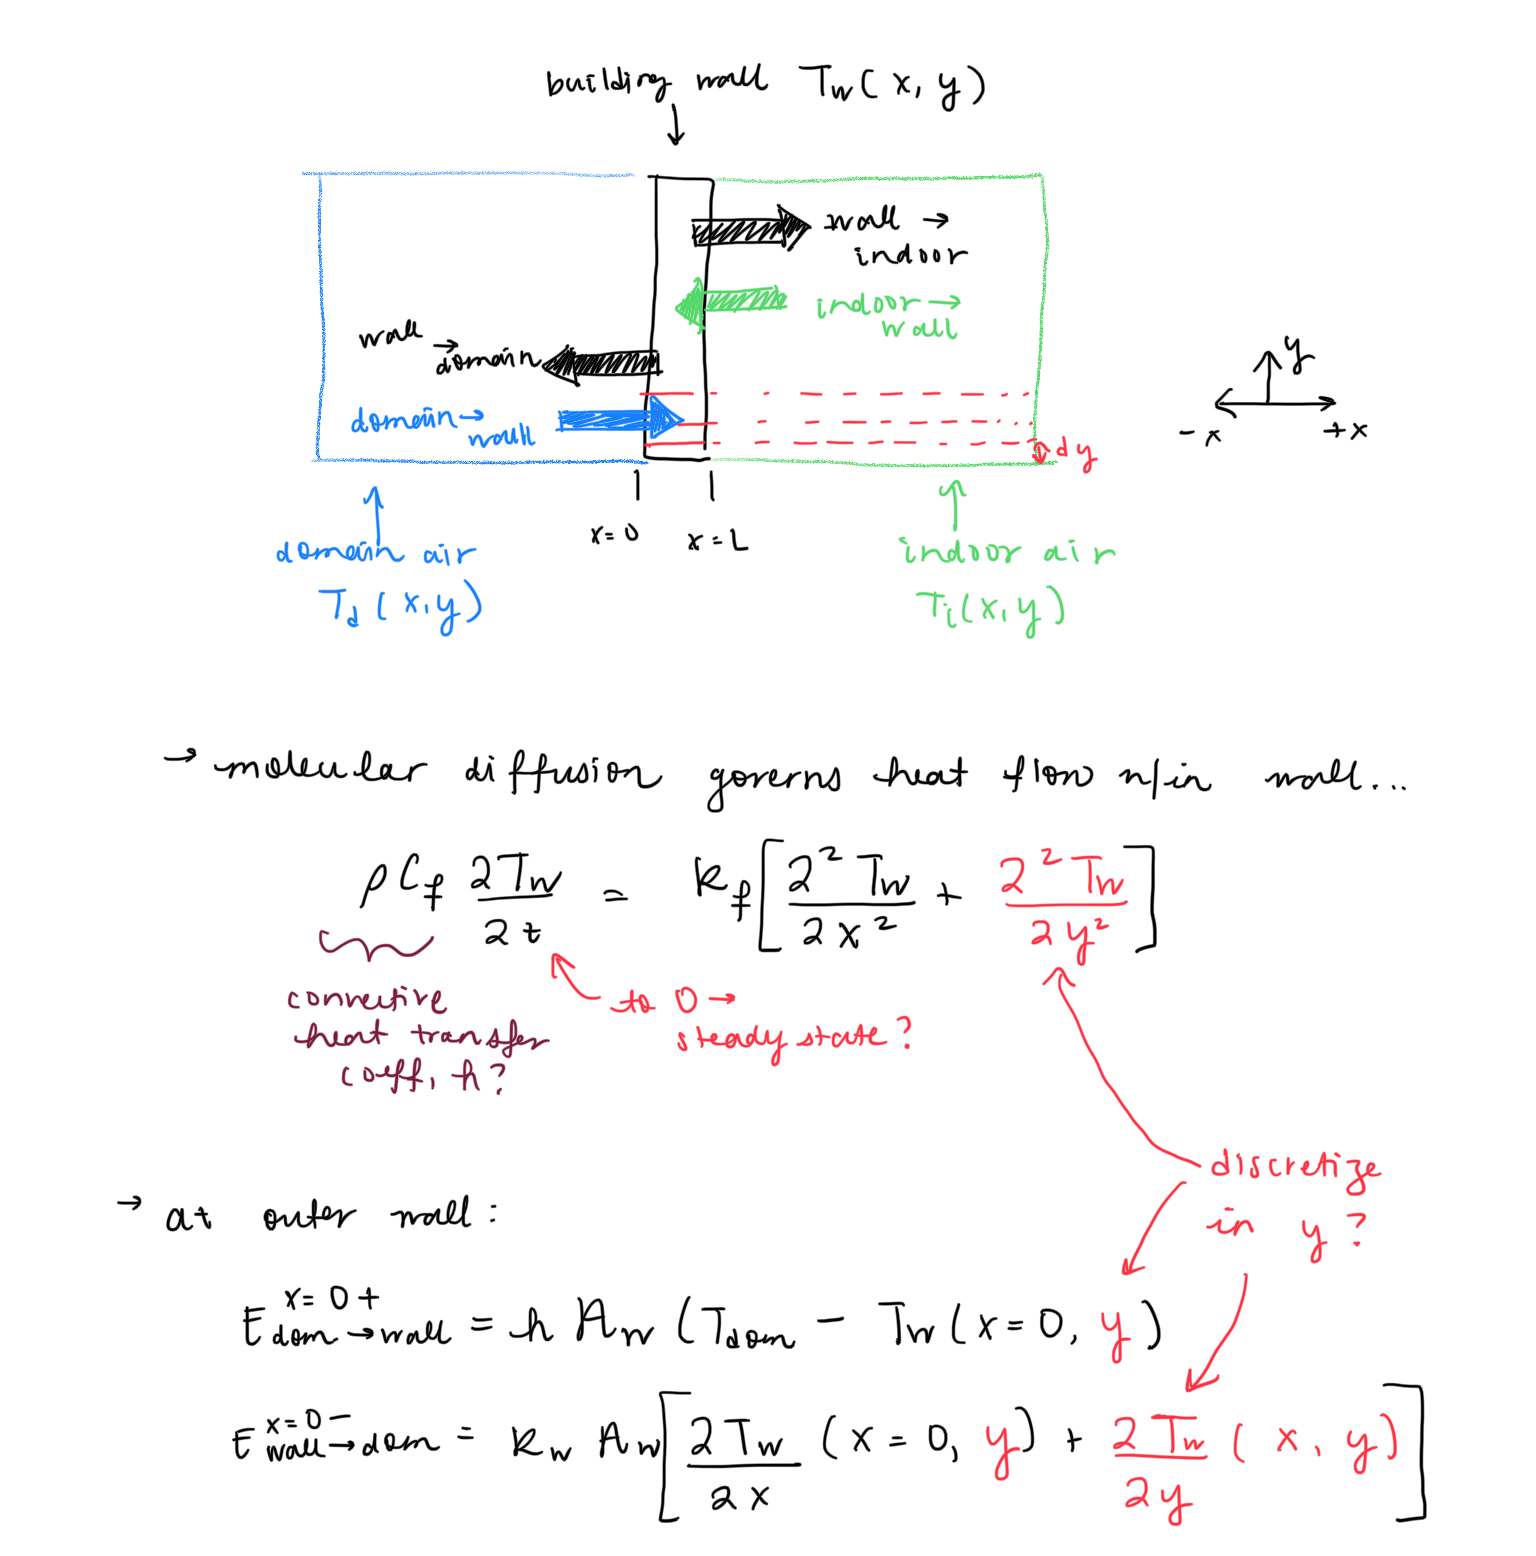 building wall T_w(x, y)
↓
wall →
indoor
indoor →
wall
wall →
domain
domain →
wall
dy
y
-x +x
x = 0 x = L
domain air
T_d(x, y)
indoor air
T_i(x, y)
→ molecular diffusion governs heat flow w/in wall...
ρC_f ∂T_w/∂t = k_f [∂²T_w/∂x² + ∂²T_w/∂y²]
convective
heat transfer
coeff, h?
to 0 →
steady state?
discretize
in y?
→ at outer wall:
E^{x=0+}_{dom → wall} = h A_w (T_dom - T_w(x=0, y)
E^{x=0-}_{wall → dom} = k_w A_w [∂T_w/∂x (x=0, y) + ∂T_w/∂y (x, y)]